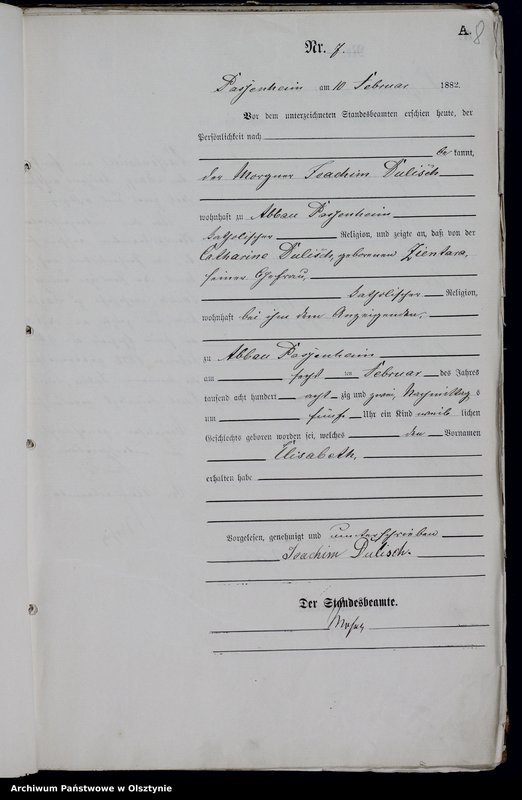 A. 8
Nr. 7.
Passenheim am 10 Februar 1882.
Vor dem unterzeichneten Standesbeamten erschien heute, der
Persönlichkeit nach
be kannt,
der Morgner Joachim Dulisch
wohnhaft zu Abbau Passenheim
katholischer Religion, und zeigte an, daß von der
Catharina Dulisch, geborenen Zientara,
seiner Ehefrau,
katholischer Religion,
wohnhaft bei ihm dem Anzeigenden,
zu Abbau Passenheim
am sechs ten Februar des Jahres
tausend acht hundert acht zig und zwei, Nachmittag s
um fünf Uhr ein Kind weib lichen
Geschlechts geboren worden sei, welches den Vornamen
Elisabeth,
erhalten habe
Vorgelesen, genehmigt und unterschrieben
Joachim Dulisch.
Der Standesbeamte.
Archiwum Państwowe w Olsztynie